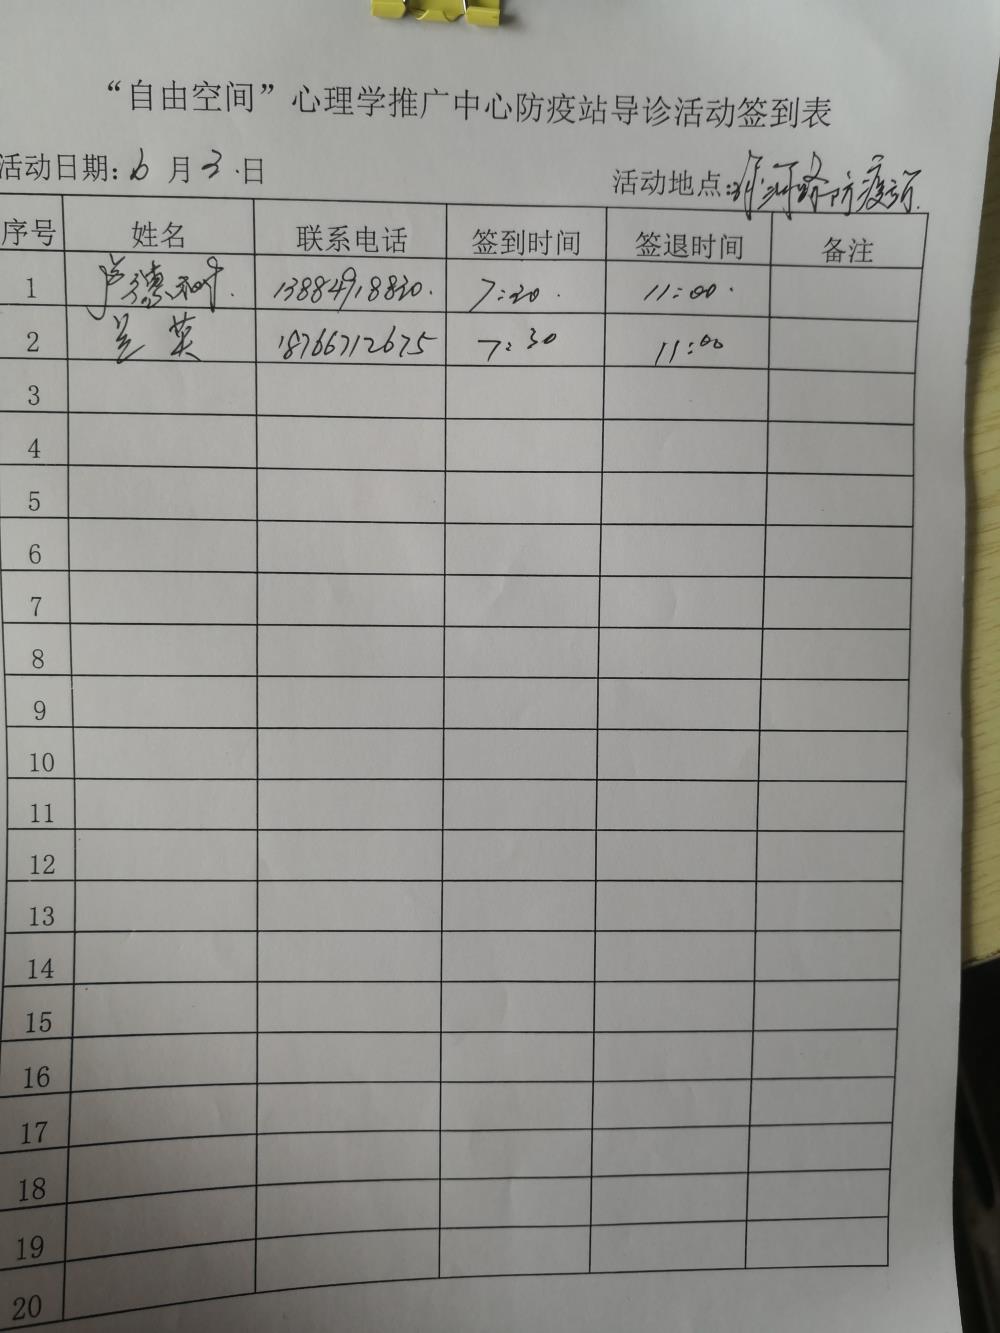 “自由空间”心理学推广中心防疫站导诊活动签到表
活动日期：6月3日 活动地点：河路防疫站
序号 姓名 联系电话 签到时间 签退时间 备注
1 卢德 13884918820 7:20 11:00
2 兰英 18766712675 7:30 11:00
3
4
5
6
7
8
9
10
11
12
13
14
15
16
17
18
19
20